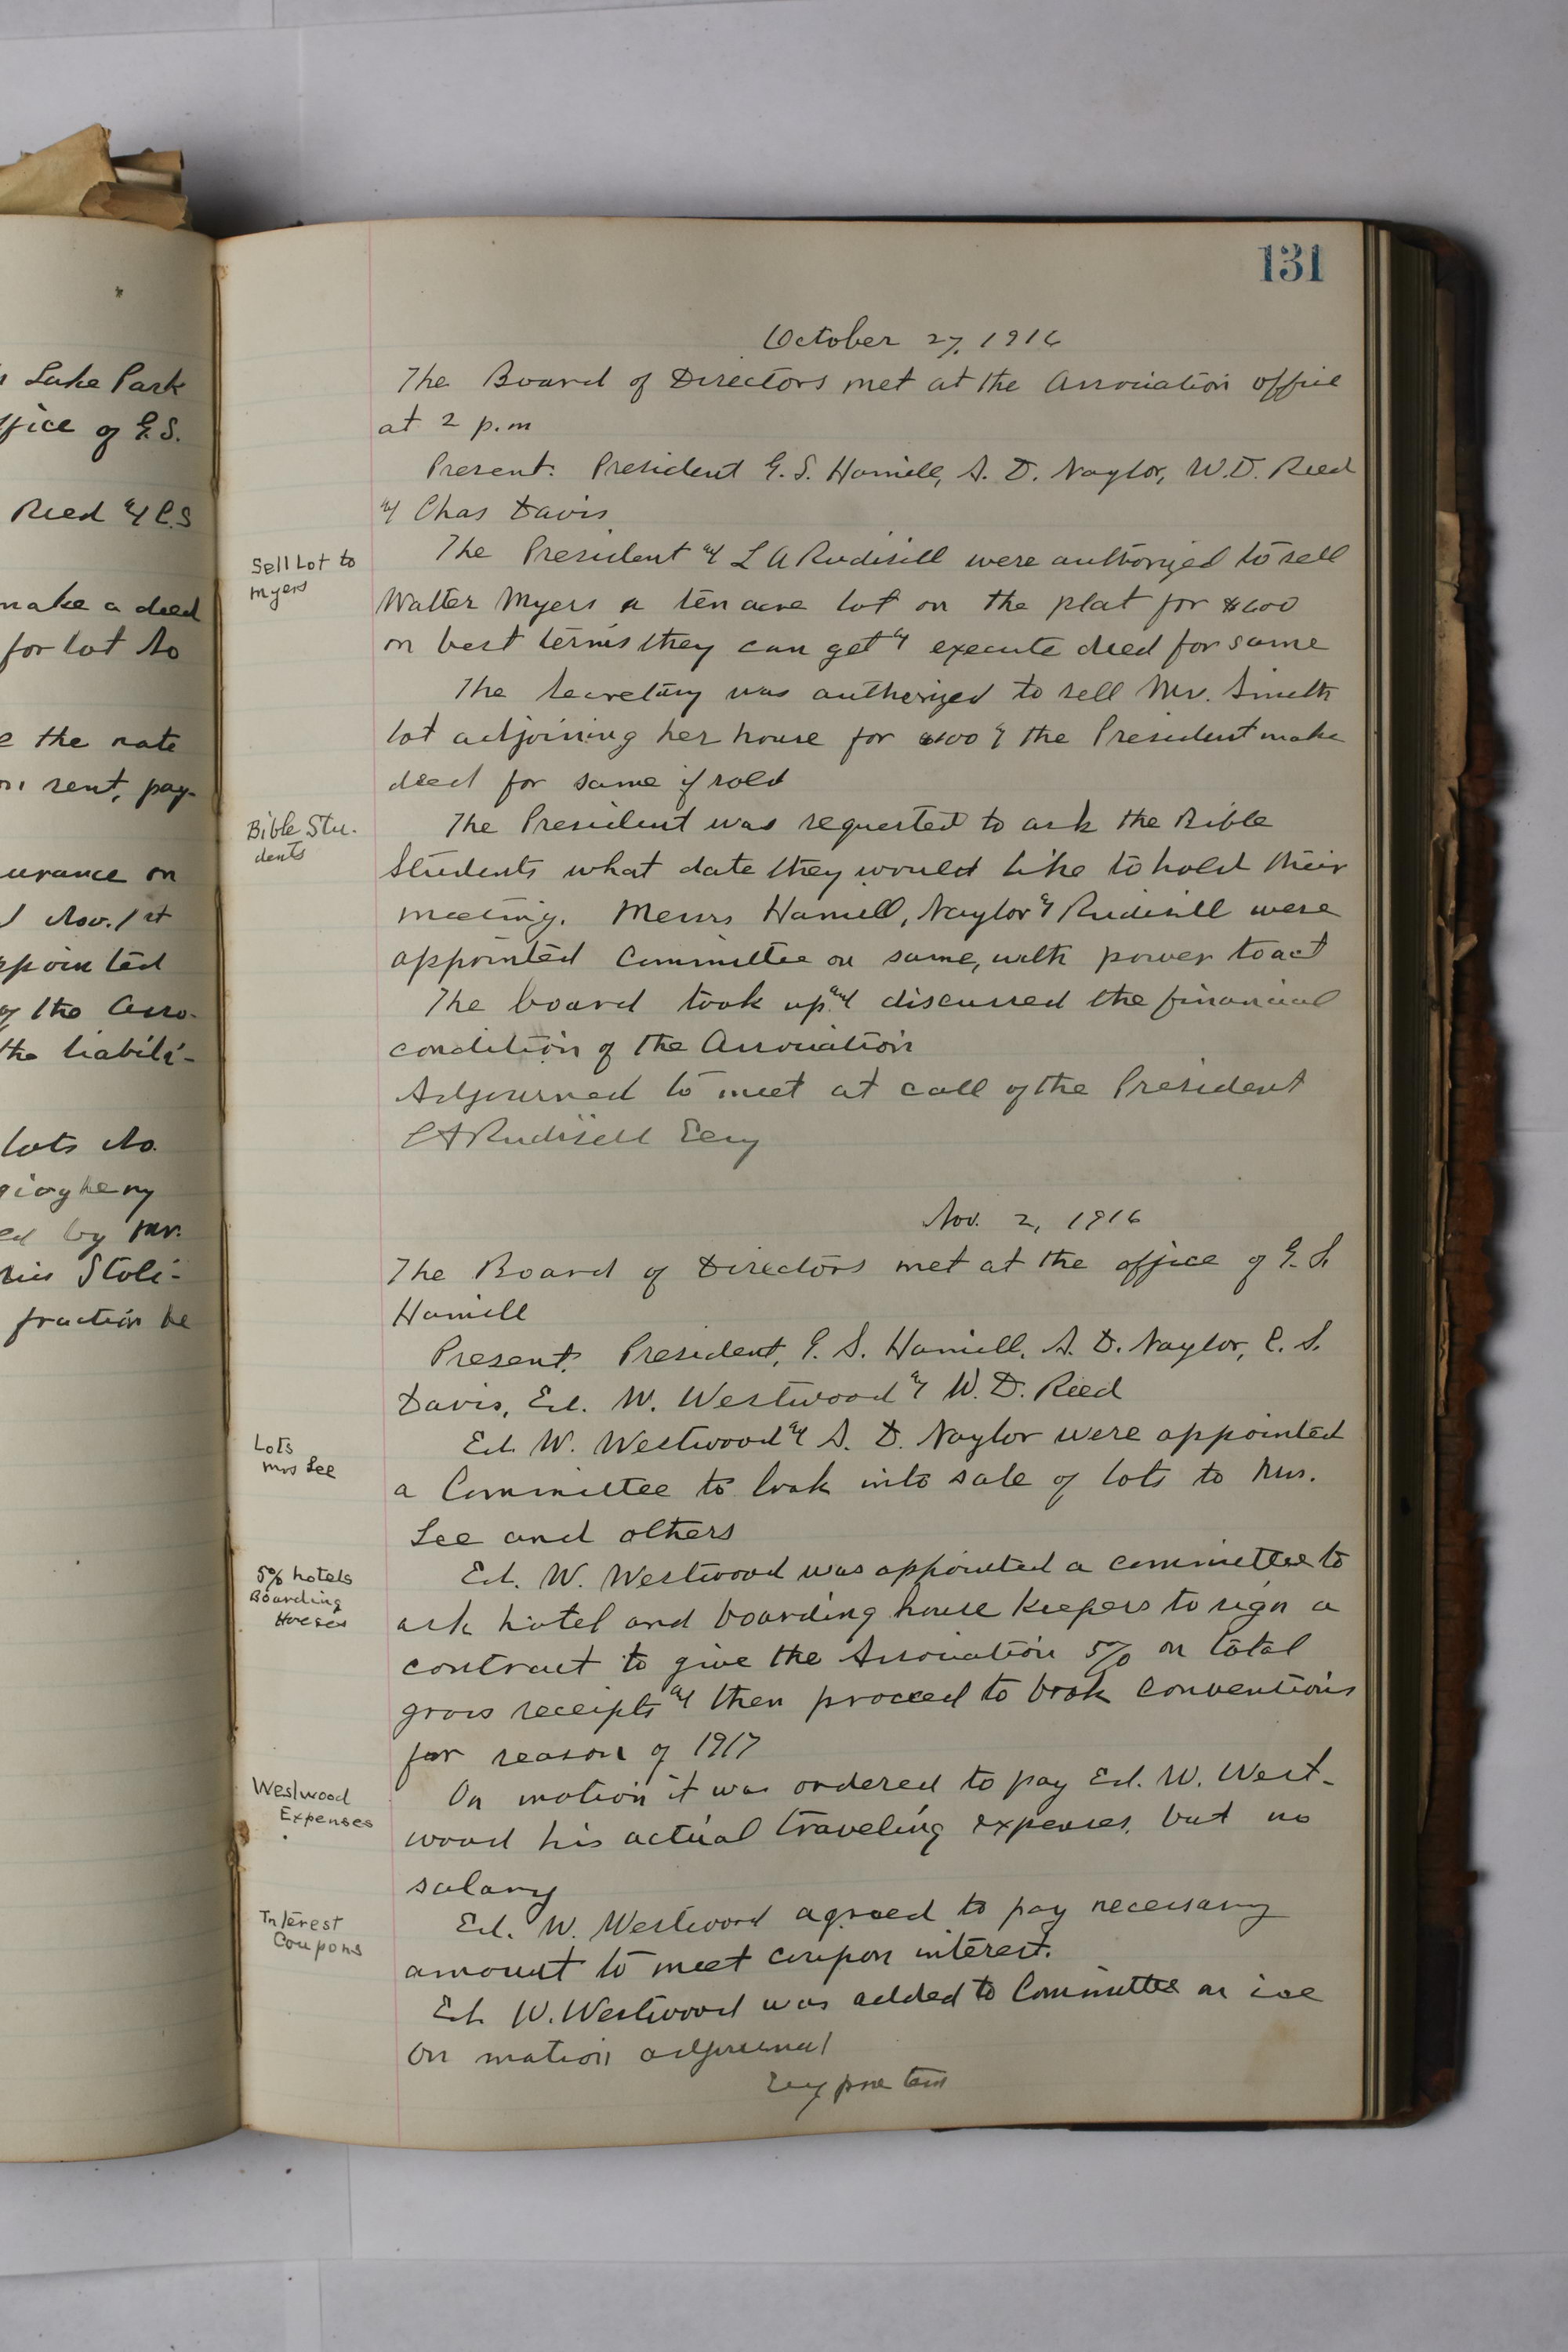 131
October 27, 1916
The Board of Directors met at the Association office
at 2 p.m
Present: President E. S. Hamill, S. D. Naylor, W. D. Reed
& Chas Davis
Sell Lot to
Myers
The President & L A Rudisill were authorized to sell
Walter Myers a ten acre lot on the plat for $600
on best terms they can get & execute deed for same
The Secretary was authorized to sell Mr. Smith
lot adjoining her house for $100 & the President make
deed for same if sold
Bible Stu-
dents
The President was requested to ask the Bible
Students what date they would like to hold their
meeting. Messrs Hamill, Naylor & Rudisill were
appointed Committee on same, with power to act
The board took up & discussed the financial
condition of the Association
Adjourned to meet at call of the President
L A Rudisill Secy
Nov. 2, 1916
The Board of Directors met at the office of E. S.
Hamill
Present: President, E. S. Hamill, S. D. Naylor, C. S.
Davis, Ed. W. Westwood & W. D. Reed
Lots
Mrs Lee
Ed. W. Westwood & S. D. Naylor were appointed
a Committee to look into sale of lots to Mrs.
Lee and others
5% hotels
Boarding
Houses
Ed. W. Westwood was appointed a committee to
ask hotel and boarding house keepers to sign a
contract to give the Association 5% on total
gross receipts & then proceed to book conventions
for season of 1917
Westwood
Expenses
On motion it was ordered to pay Ed. W. West-
wood his actual traveling expenses, but no
salary
Interest
Coupons
Ed. W. Westwood agreed to pay necessary
amount to meet coupon interest.
Ed. W. Westwood was added to Committee on ice
On motion adjourned
Secy pro tem
s Lake Park
ffice of E. S.
Reed & C. S
make a deed
for lot No
e the rate
rent, pay-
urance on
Nov. 1st
ppointed
of the Asso-
the liabili-
lots No.
giogheny
ed by Mr.
Stoli-
fraction be